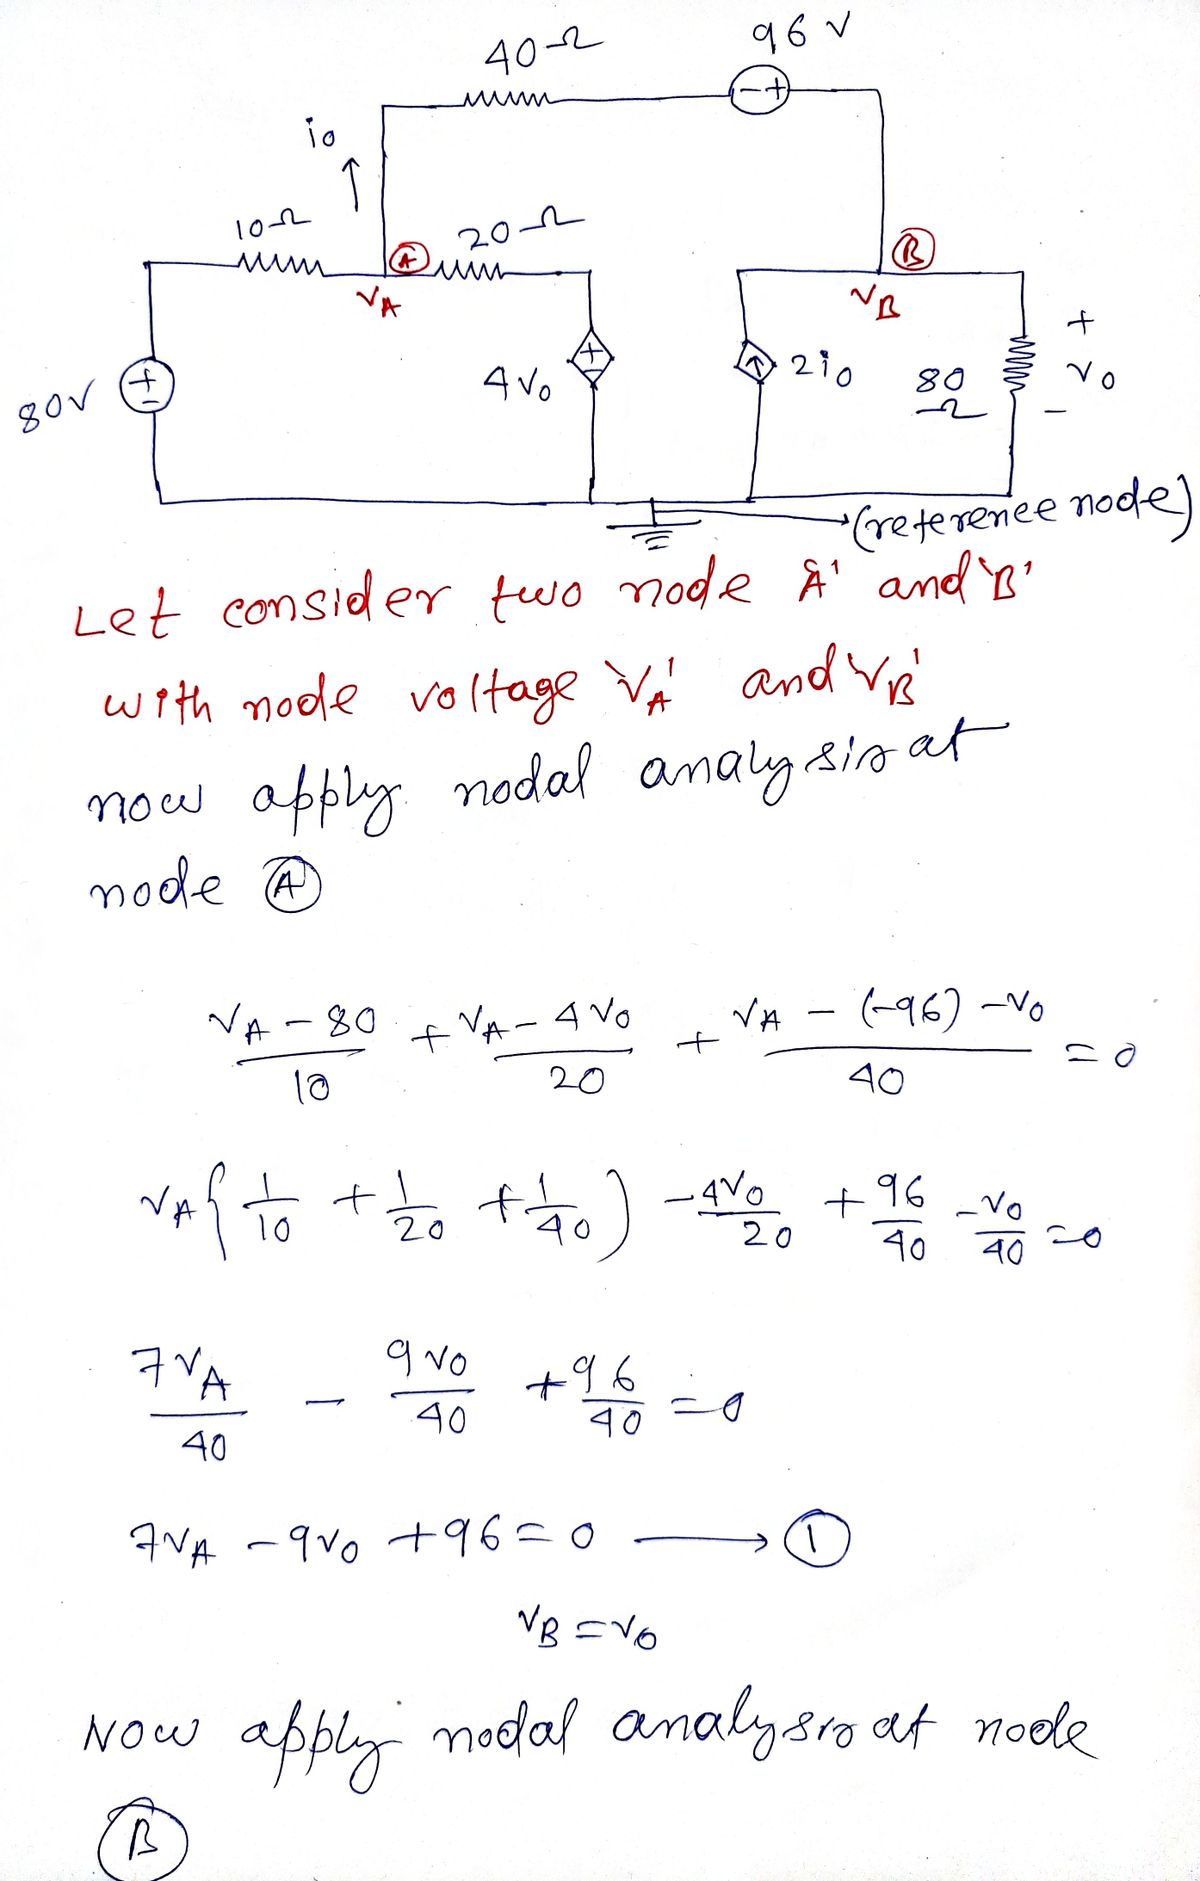 40Ω
96 V
- +
io
10Ω
20Ω
A
VA
B
VB
80V
+
-
4Vo
+
-
2io
80
Ω
+
Vo
-
(reference node)
Let consider two node 'A' and 'B'
with node voltage 'VA' and 'VB'
now apply nodal analysis at
node A
VA - 80 / 10 + VA - 4Vo / 20 + VA - (-96) - Vo / 40 = 0
VA { 1/10 + 1/20 + 1/40 ) - 4Vo/20 + 96/40 - Vo/40 = 0
7VA/40 - 9Vo/40 + 96/40 = 0
7VA - 9Vo + 96 = 0 → 1
VB = Vo
Now apply nodal analysis at node
B